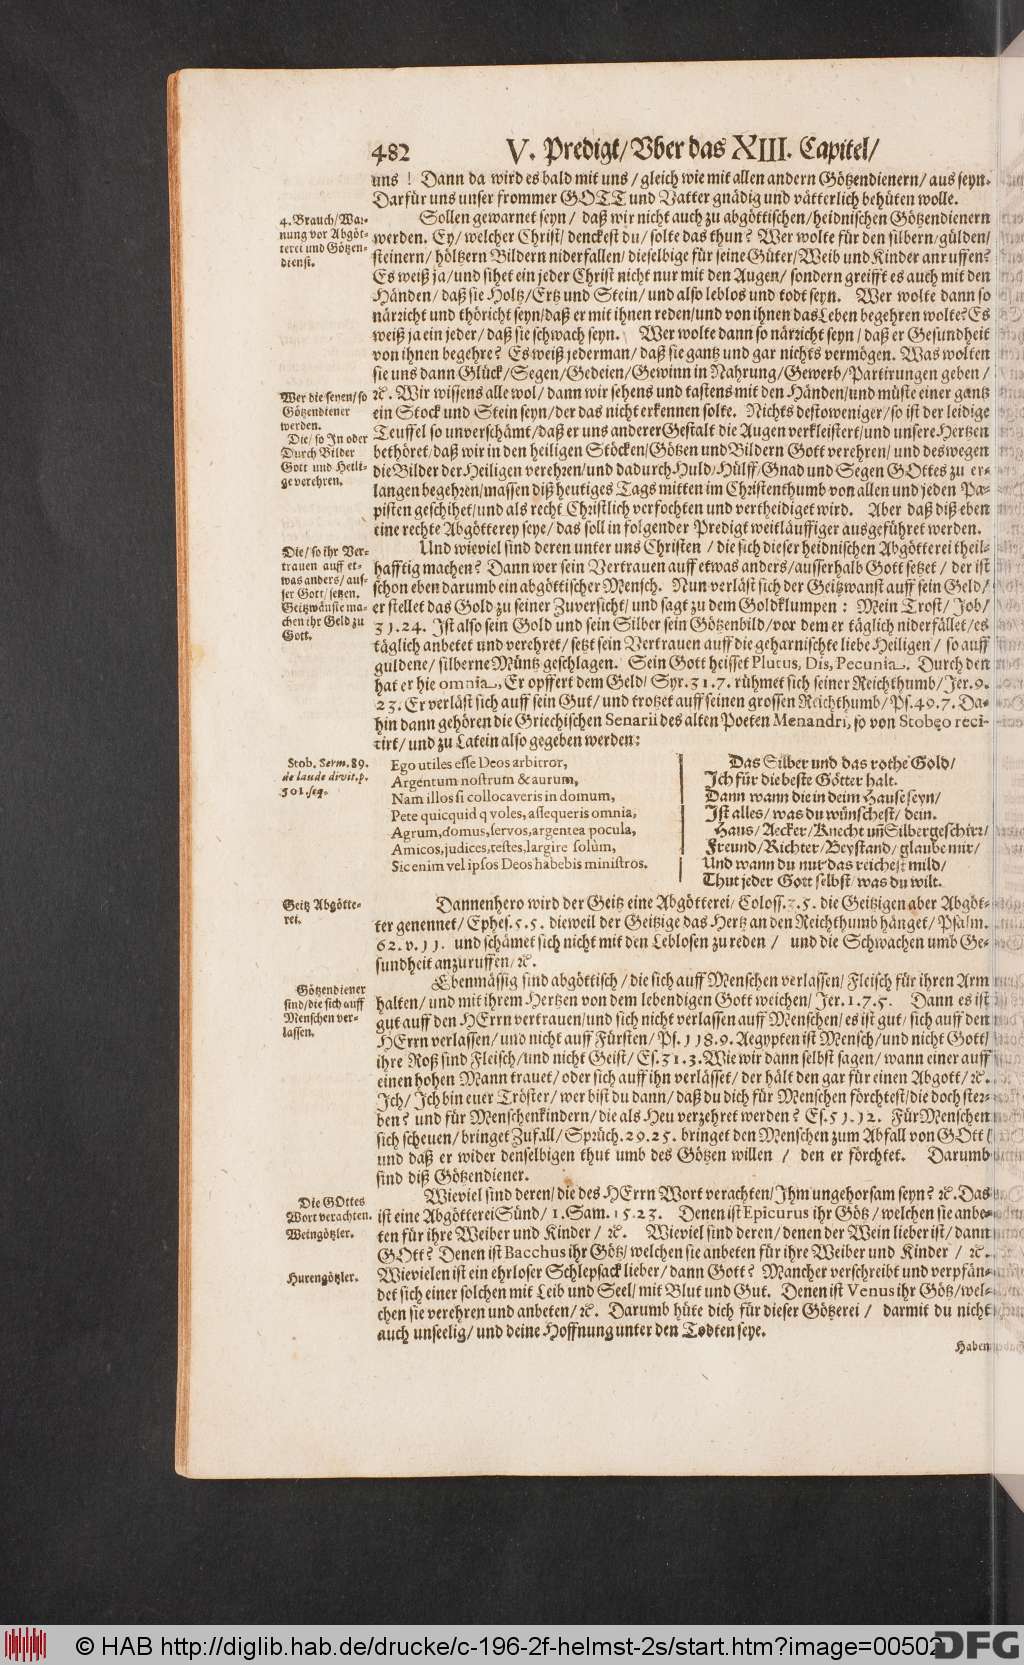 482 V. Predigt/ Vber das XIII. Capitel/
uns! Dann da wird es bald mit uns/ gleich wie mit allen andern Götzendienern/ aus seyn.
Darfür uns unser frommer GOTT und Vatter gnädig und vätterlich behüten wolle.
4. Brauch/ War-
nung vor Abgöt-
terei und Götzen-
dienst.
Sollen gewarnet seyn/ daß wir nicht auch zu abgöttischen/ heidnischen Götzendienern
werden. Ey/ welcher Christ/ denckest du/ solte das thun? Wer wolte für den silbern/ gülden/
steinern/ höltzern Bildern niderfallen/ dieselbige für seine Güter/ Weib und Kinder anruffen?
Es weiß ja/ und sihet ein jeder Christ nicht nur mit den Augen/ sondern greifft es auch mit den
Händen/ daß sie Holtz/ Ertz und Stein/ und also leblos und todt seyn. Wer wolte dann so
närricht und thöricht seyn/ daß er mit ihnen reden/ und von ihnen das Leben begehren wolte? Es
weiß ja ein jeder/ daß sie schwach seyn. Wer wolte dann so närricht seyn/ daß er Gesundheit
von ihnen begehre? Es weiß jederman/ daß sie gantz und gar nichts vermögen. Was wolten
sie uns dann Glück/ Segen/ Gedeien/ Gewinn in Nahrung/ Gewerb/ Partirungen geben/
Wer die seyen/ so
Götzendiener
werden.
Die/ so In oder
Durch Bilder
Gott und Heili-
ge verehren.
ꝛc. Wir wissens alle wol/ dann wir sehens und tastens mit den Händen/ und müste einer gantz
ein Stock und Stein seyn/ der das nicht erkennen solte. Nichts destoweniger/ so ist der leidige
Teuffel so unverschämt/ daß er uns anderer Gestalt die Augen verkleistert/ und unsere Hertzen
bethöret/ daß wir in den heiligen Stöcken/ Götzen und Bildern Gott verehren/ und deswegen
die Bilder der Heiligen verehren/ und dadurch Huld/ Hülff/ Gnad und Segen GOttes zu er-
langen begehren/ massen diß heutiges Tags mitten im Christenthumb von allen und jeden Pa-
pisten geschihet/ und als recht Christlich verfochten und vertheidiget wird. Aber daß diß eben
eine rechte Abgötterey seye/ das soll in folgender Predigt weitläuffiger ausgeführet werden.
Die/ so ihr Ver-
trauen auff et-
was anders/ aus-
ser Gott/ setzen.
Geitzwänste ma-
chen ihr Geld zu
Gott.
Und wieviel sind deren unter uns Christen/ die sich dieser heidnischen Abgötterei theil-
hafftig machen? Dann wer sein Vertrauen auff etwas anders/ ausserhalb Gott setzet/ der ist
schon eben darumb ein abgöttischer Mensch. Nun verläst sich der Geitzwanst auff sein Geld/
er stellet das Gold zu seiner Zuversicht/ und sagt zu dem Goldklumpen: Mein Trost/ Job/
31.24. Ist also sein Gold und sein Silber sein Götzenbild/ vor dem er täglich niderfället/ es
täglich anbetet und verehret/ setzt sein Vertrauen auff die geharnischte liebe Heiligen/ so auff
guldene/ silberne Müntz geschlagen. Sein Gott heisset Plutus, Dis, Pecunia. Durch den
hat er hie omnia, Er opffert dem Geld/ Syr. 31.7. rühmet sich seiner Reichthumb/ Jer. 9.
23. Er verläst sich auff sein Gut/ und trotzet auff seinen grossen Reichthumb/ Ps. 49.7. Da-
hin dann gehören die Griechischen Senarii des alten Poeten Menandri, so von Stobęo reci-
tirt/ und zu Latein also gegeben werden:
Stob. Serm. 89.
de laude divit. p.
501. seq.
Ego utiles esse Deos arbitror,
Argentum nostrum & aurum,
Nam illos si collocaveris in domum,
Pete quicquid q voles, assequeris omnia,
Agrum, domus, servos, argentea pocula,
Amicos, judices, testes, largire solùm,
Sic enim vel ipsos Deos habebis ministros.
Das Silber und das rothe Gold/
Ich für die beste Götter halt.
Dann wann die in deim Hause seyn/
Ist alles/ was du wünschest/ dein.
Haus/ Aecker/ Knecht uñ Silbergeschirr/
Freund/ Richter/ Beystand/ glaube mir/
Und wann du nur das reichest mild/
Thut jeder Gott selbst/ was du wilt.
Geitz Abgötte-
rei.
Dannenhero wird der Geitz eine Abgötterei/ Coloss. 3.5. die Geitzigen aber Abgöt-
ter genennet/ Ephes. 5.5. dieweil der Geitzige das Hertz an den Reichthumb hänget/ Psalm.
62. v. 11. und schämet sich nicht mit den Leblosen zu reden/ und die Schwachen umb Ge-
sundheit anzuruffen/ ꝛc.
Götzendiener
sind/ die sich auff
Menschen ver-
lassen.
Ebenmässig sind abgöttisch/ die sich auff Menschen verlassen/ Fleisch für ihren Arm
halten/ und mit ihrem Hertzen von dem lebendigen Gott weichen/ Jer. 17.5. Dann es ist
gut auff den HErrn vertrauen/ und sich nicht verlassen auff Menschen/ es ist gut/ sich auff den
HErrn verlassen/ und nicht auff Fürsten/ Ps. 118.9. Aegypten ist Mensch/ und nicht Gott/
ihre Roß sind Fleisch/ und nicht Geist/ Es. 31.3. Wie wir dann selbst sagen/ wann einer auff
einen hohen Mann trauet/ oder sich auff ihn verlässet/ der hält den gar für einen Abgott/ ꝛc.
Ich/ Ich bin euer Tröster/ wer bist du dann/ daß du dich für Menschen förchtest/ die doch ster-
ben? und für Menschenkindern/ die als Heu verzehret werden? Es. 51.12. Für Menschen
sich scheuen/ bringet Zufall/ Sprüch. 29.25. bringet den Menschen zum Abfall von GOtt/
und daß er wider denselbigen thut umb des Götzen willen/ den er förchtet. Darumb
sind diß Götzendiener.
Die GOttes
Wort verachten.
Weingötzler.
Hurengötzler.
Wieviel sind deren/ die des HErrn Wort verachten/ Ihm ungehorsam seyn? ꝛc. Das
ist eine Abgötterei Sünd/ 1. Sam. 15.23. Denen ist Epicurus ihr Götz/ welchen sie anbe-
ten für ihre Weiber und Kinder/ ꝛc. Wieviel sind deren/ denen der Wein lieber ist/ dann
GOtt? Denen ist Bacchus ihr Götz/ welchen sie anbeten für ihre Weiber und Kinder/ ꝛc.
Wievielen ist ein ehrloser Schlepsack lieber/ dann Gott? Mancher verschreibt und verpfän-
det sich einer solchen mit Leib und Seel/ mit Blut und Gut. Denen ist Venus ihr Götz/ wel-
chen sie verehren und anbeten/ ꝛc. Darumb hüte dich für dieser Götzerei/ darmit du nicht
auch unseelig/ und deine Hoffnung unter den Todten seye.
Haben
© HAB http://diglib.hab.de/drucke/c-196-2f-helmst-2s/start.htm?image=00502
DFG